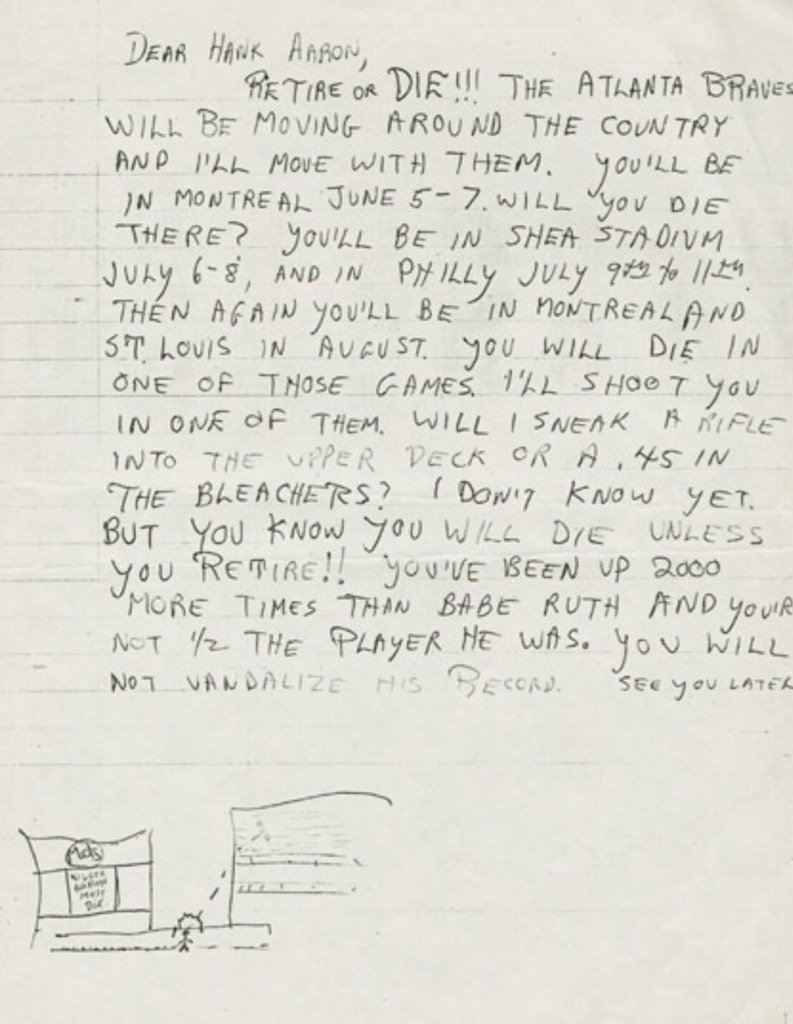 DEAR HANK AARON,
RETIRE OR DIE!!! THE ATLANTA BRAVES
WILL BE MOVING AROUND THE COUNTRY
AND I'LL MOVE WITH THEM. YOU'LL BE
IN MONTREAL JUNE 5-7. WILL YOU DIE
THERE? YOU'LL BE IN SHEA STADIUM
JULY 6-8, AND IN PHILLY JULY 9TH TO 11TH.
THEN AGAIN YOU'LL BE IN MONTREAL AND
ST. LOUIS IN AUGUST. YOU WILL DIE IN
ONE OF THOSE GAMES. I'LL SHOOT YOU
IN ONE OF THEM. WILL I SNEAK A RIFLE
INTO THE UPPER DECK OR A .45 IN
THE BLEACHERS? I DON'T KNOW YET.
BUT YOU KNOW YOU WILL DIE UNLESS
YOU RETIRE!! YOU'VE BEEN UP 2000
MORE TIMES THAN BABE RUTH AND YOU'R
NOT 1/2 THE PLAYER HE WAS. YOU WILL
NOT VANDALIZE HIS RECORD. SEE YOU LATER
Mets
AARON
MUST
DIE